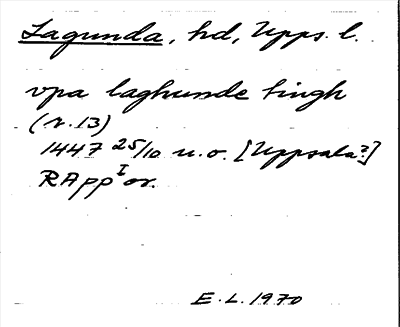 Lagunda, hd, Upps. l.
vpa laghunde tingh
(r. 13)
1447 25/10 u.o. [Uppsala?]
RAppI or.
E.L. 1970